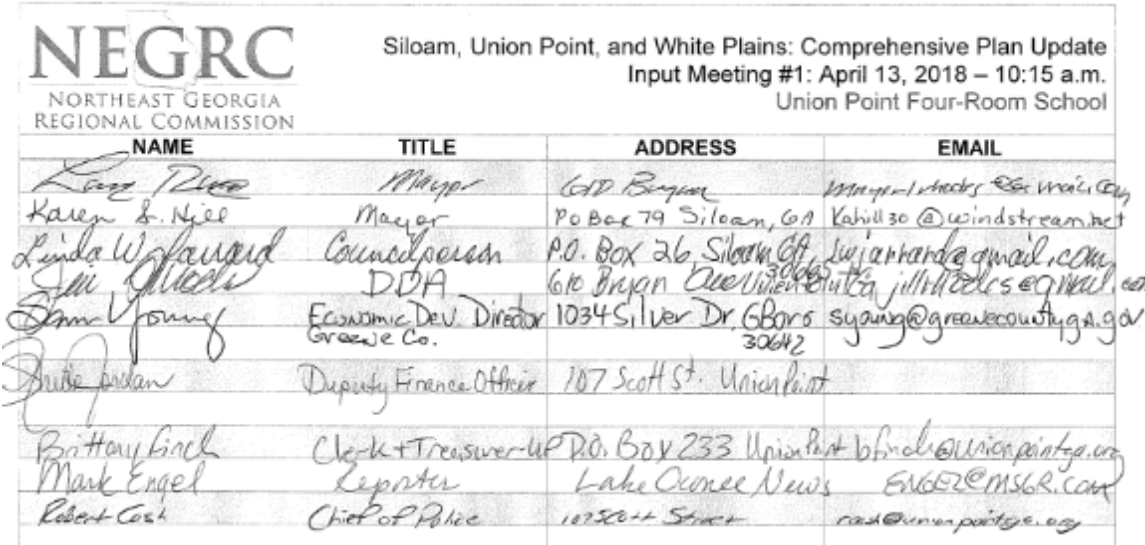 NEGRC
NORTHEAST GEORGIA
REGIONAL COMMISSION
Siloam, Union Point, and White Plains: Comprehensive Plan Update
Input Meeting #1: April 13, 2018 – 10:15 a.m.
Union Point Four-Room School
NAME TITLE ADDRESS EMAIL
Mayor 610 Bryan
Karen S. Hill Mayor PO Box 79 Siloam, GA Kahill30@windstream.net
Linda W Jarrard Councilperson P.O. Box 26, Siloam GA, lwjarrard@gmail.com
Jill DDA 610 Bryan Ave
Young Economic Dev. Director 1034 Silver Dr. GBoro syoung@greenecountyga.gov
Greene Co. 30642
Jordan Deputy Finance Officer 107 Scott St. Union Point
Brittany Finch Clerk + Treasurer-UP P.O. Box 233 Union Point bfinch@unionpointga.org
Mark Engel Reporter Lake Oconee News
Robert Cosh Chief of Police 107 Scott Street